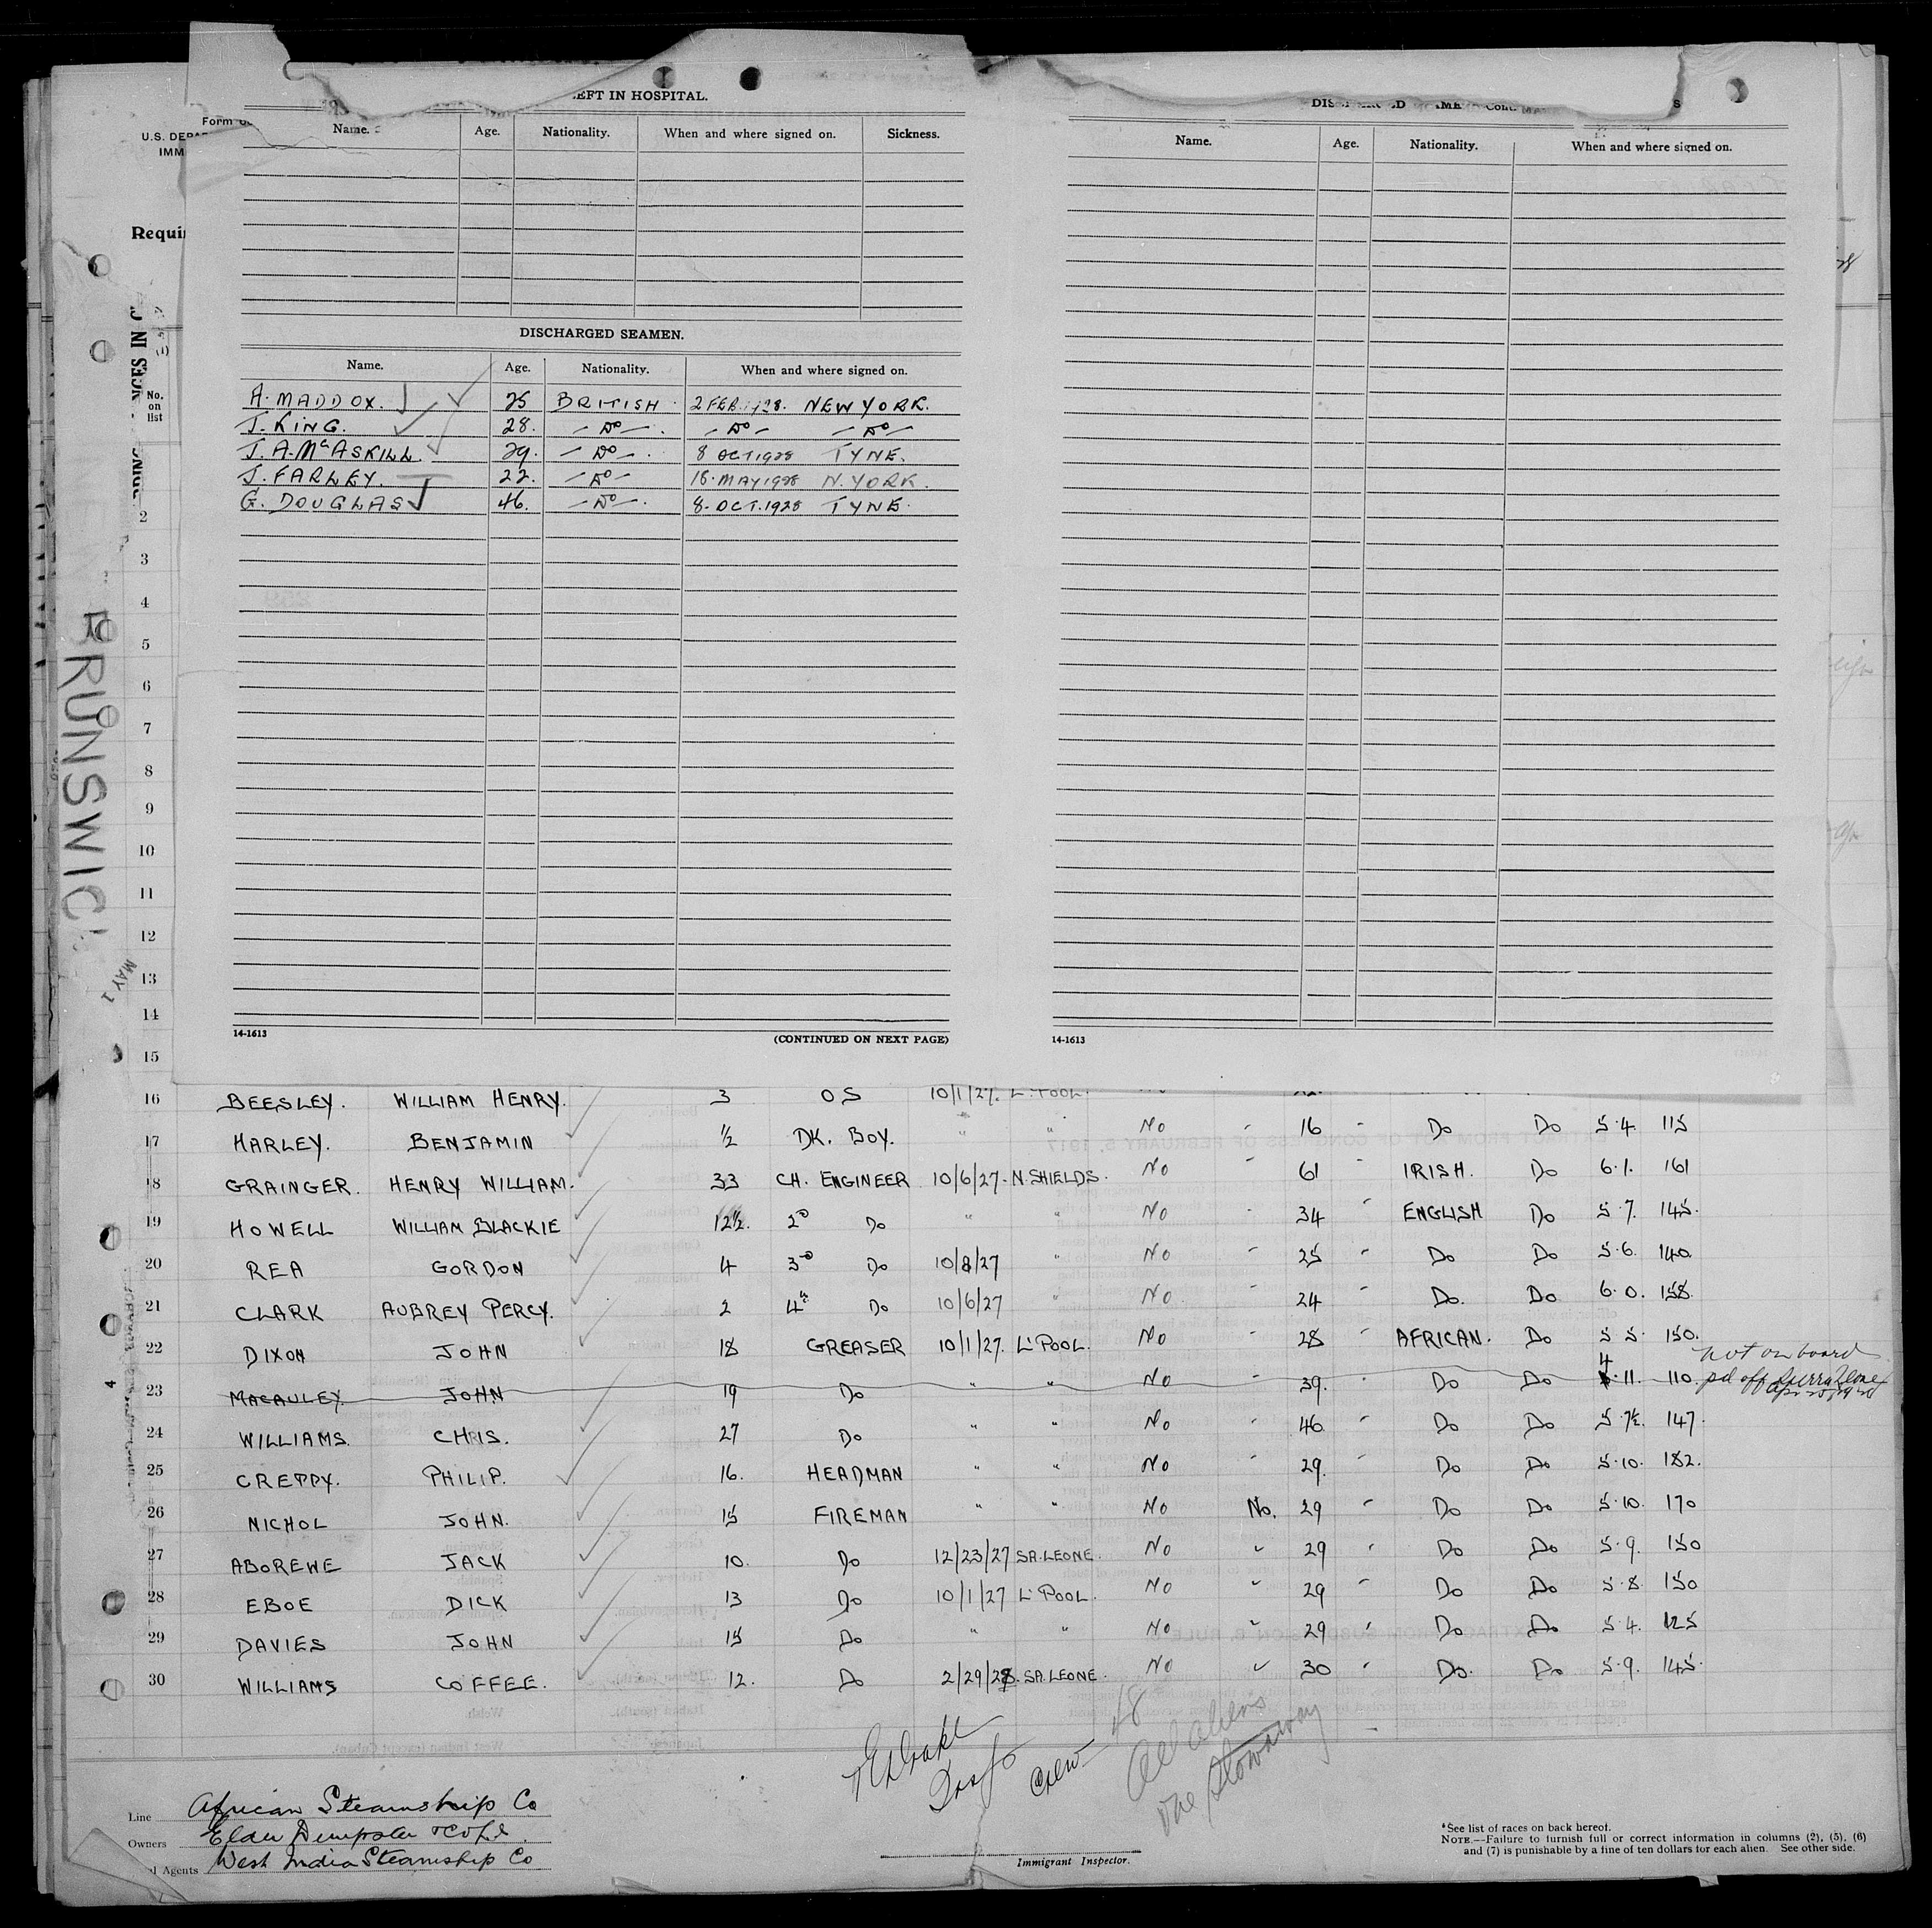 LEFT IN HOSPITAL.
Name. Age. Nationality. When and where signed on. Sickness.
DISCHARGED SEAMEN.
Name. Age. Nationality. When and where signed on.
A. MADDOX. 25 BRITISH 2 FEB. 1928. NEW YORK.
J. KING. 28. — Do — . — Do — — Do —
J. A. McASKILL. 29. — Do — . 8 OCT 1928 TYNE.
J. FARLEY. 22. — Do — 18. MAY 1928 N. YORK.
G. DOUGLAS 46. — Do — . 8. OCT. 1928 TYNE.
14-1613 (CONTINUED ON NEXT PAGE)
Name. Age. Nationality. When and where signed on.
14-1613
Form
U.S. DEPA
IMM
Requi
No. on list
BRUNSWIC
MAY 1
2
3
4
5
6
7
8
9
10
11
12
13
14
15
16 BEESLEY. WILLIAM HENRY. 3 OS 10/1/27. L'POOL.
17 HARLEY. BENJAMIN 1/2 DK. BOY. " " No 16 Do Do 5.4. 115
18 GRAINGER. HENRY WILLIAM. 33 CH. ENGINEER 10/6/27. N. SHIELDS. No 61 IRISH. Do 6.1. 161
19 HOWELL WILLIAM BLACKIE 12½. 2D Do " " No 34 ENGLISH Do 5.7. 145.
20 REA GORDON 4 3D Do 10/8/27 " No 25 Do Do 5.6. 140
21 CLARK AUBREY PERCY. 2 4th Do 10/6/27 " No. 24 Do. Do 6.0. 158.
22 DIXON JOHN 18 GREASER 10/1/27. L'POOL. No 28 AFRICAN. Do 5 5. 150.
23 MACAULEY JOHN 19 Do " " No 39. Do Do 4.11. 110. not on board
pd off Sierra Leone
24 WILLIAMS. CHRIS. 27 Do " " No 46 Do Do 5.7½. 147.
25 CREPPY. PHILIP. 16. HEADMAN " " No 29. Do Do 5.10. 182.
26 NICHOL JOHN. 15 FIREMAN " " No No. 29 Do Do 5.10. 170
27 ABOREWE JACK 10. Do 12/23/27 SA. LEONE. No " 29 Do Do 5.9. 150
28 EBOE DICK 13 Do 10/1/27 L'POOL. No " 29 Do Do 5.8. 150
29 DAVIES JOHN 15 Do " " No " 29 Do Do 5.4. 125
30 WILLIAMS COFFEE. 12. Do 2/29/28. SA. LEONE. No " 30 Do. Do 5.9. 145.
Crew 48
All aliens
one Stowaway
Line African Steamship Co
Owners Elder Dempster & Co Ld.
Agents West India Steamship Co
Immigrant Inspector.
*See list of races on back hereof.
NOTE.—Failure to furnish full or correct information in columns (2), (5), (6)
and (7) is punishable by a fine of ten dollars for each alien. See other side.